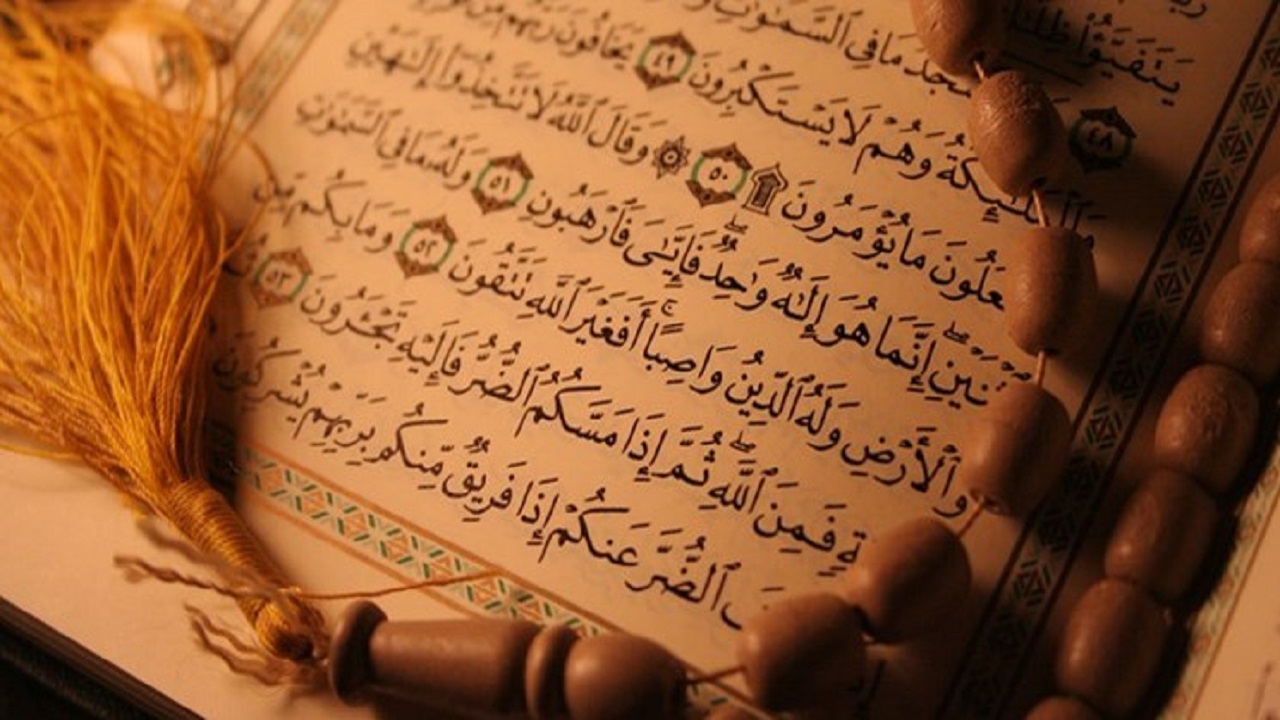 يَتَفَيَّؤُا۟
مَا فِى ٱلسَّمَـٰوَٰتِ
٤٨
وَٱلْمَلَـٰٓئِكَةُ وَهُمْ لَا يَسْتَكْبِرُونَ ٤٩ يَخَافُونَ رَبَّهُم مِّن
عَلُونَ مَا يُؤْمَرُونَ ۩ ٥٠ ۞ وَقَالَ ٱللَّهُ لَا تَتَّخِذُوٓا۟ إِلَـٰهَيْنِ
ثْنَيْنِ ۖ إِنَّمَا هُوَ إِلَـٰهٌ وَٰحِدٌ ۖ فَإِيَّـٰىَ فَٱرْهَبُونِ ٥١ وَلَهُۥ مَا فِى ٱلسَّمَـٰوَٰتِ
وَٱلْأَرْضِ وَلَهُ ٱلدِّينُ وَاصِبًا ۚ أَفَغَيْرَ ٱللَّهِ تَتَّقُونَ ٥٢ وَمَا بِكُم مِّن
ةٍ فَمِنَ ٱللَّهِ ۖ ثُمَّ إِذَا مَسَّكُمُ ٱلضُّرُّ فَإِلَيْهِ تَجْـَٔرُونَ ٥٣
فَ ٱلضُّرَّ عَنكُمْ إِذَا فَرِيقٌ مِّنكُم بِرَبِّهِمْ يُشْرِكُونَ